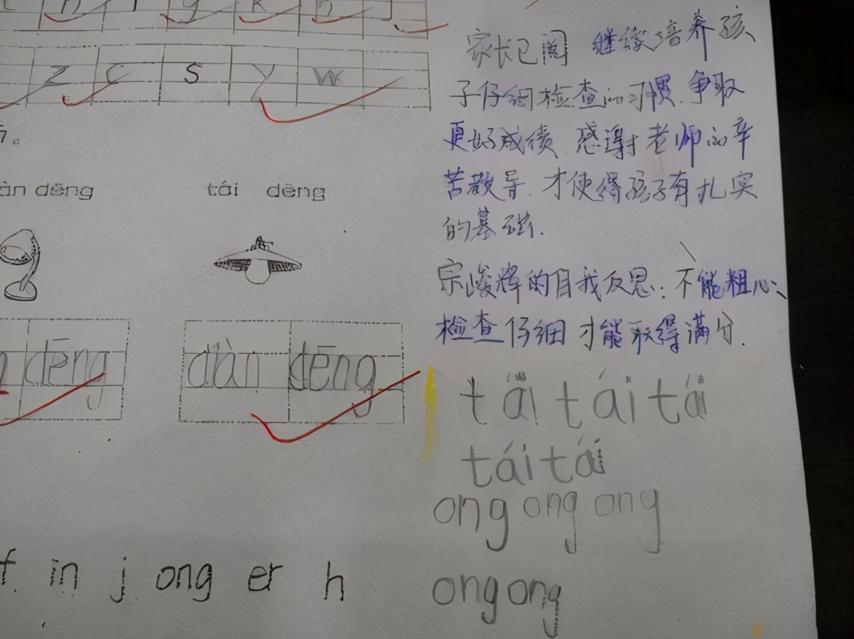 z c s y w
àn dēng
tái dēng
dēng
diàn dēng
f in j ong er h
家长已阅 继续培养孩
子仔细检查的习惯.争取
更好成绩 感谢老师的辛
苦教导.才使得孩子有扎实
的基础.
宗峻辉的自我反思:不能粗心、
检查仔细才能取得满分.
tái tái tái
tái tái
ong ong ong
ong ong